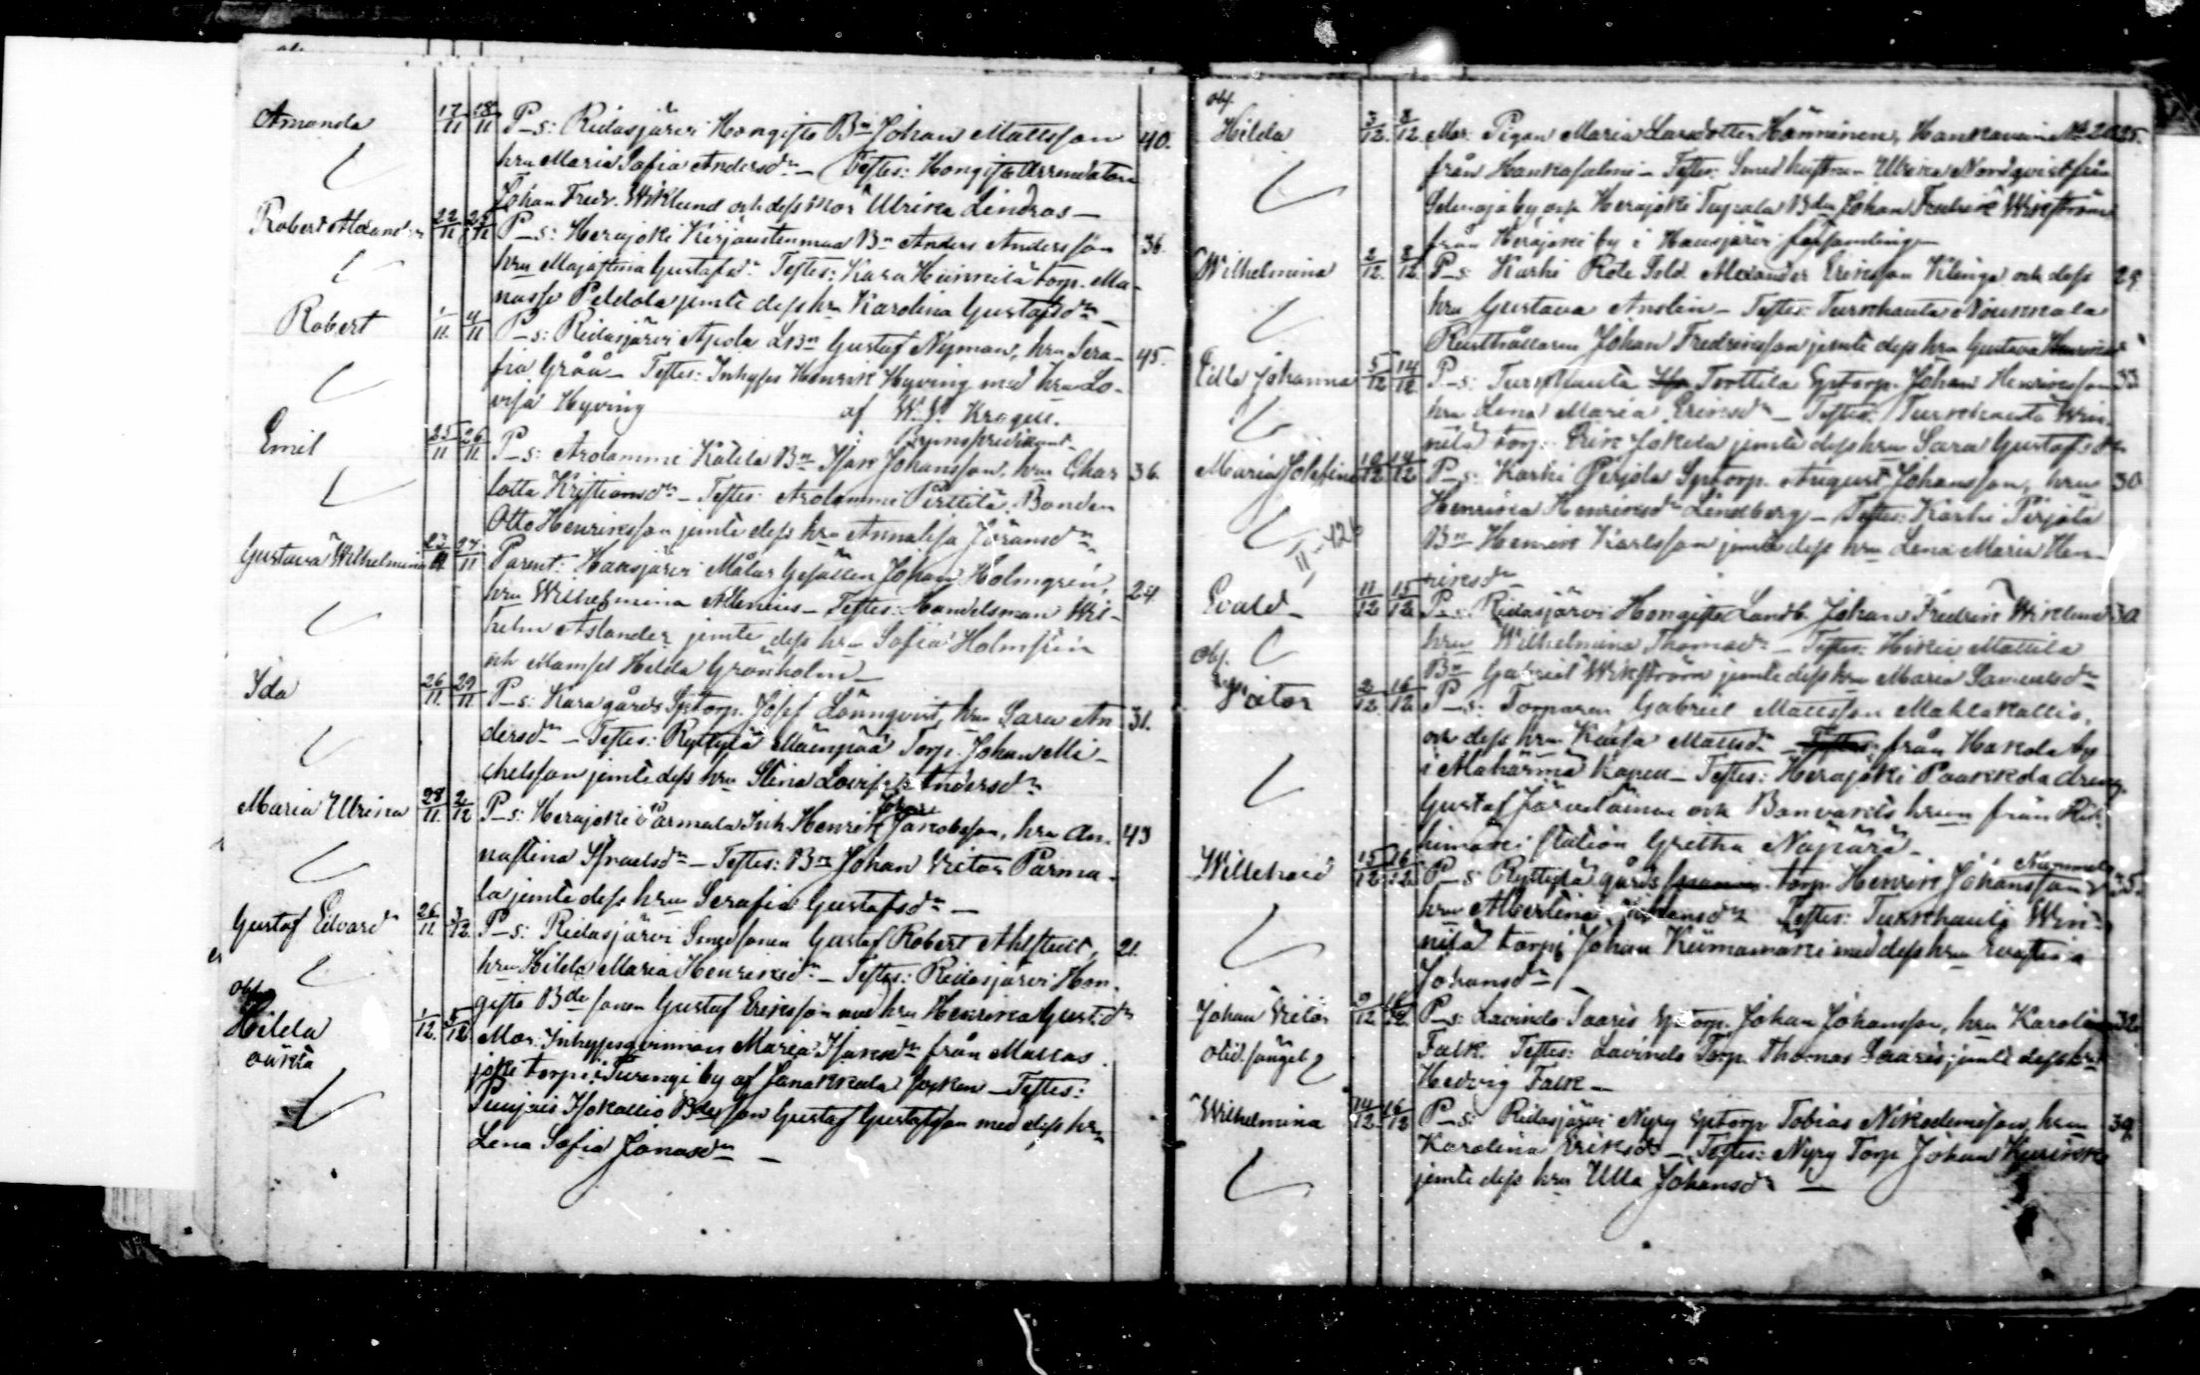 Amanda 17/11 18/11 P_s: Ridasjärvi Hongisto Bn Johan Mattsson 40.
hru Maria Sofia Andersdr _ Testes: Hongisto Arrendatorn
Johan Fredr. Wiklund och dess mor Ulrika Lindros _
Robert Alexander 22/11 25/11 P_s: Herajoki Kirjaustenmaa Bn Anders Andersson 36.
hru Majastina Gustafsdr Testes: Kara Heinnilä torp. Ma-
nasse Peldola jemte dess hru Karolina Gustafsdr _
Robert 1/11 4/11 P_s: Ridasjärvi Ajola LBn Gustaf Nyman, hru Sera- 45.
fia Gråå _ Testes: Inhyses Henrik Hyving med hru Lo-
visa Hyving af W. S. Krogell.
Emil 25/11 26/11 P_s: Arolammi Katila Bn Isak Johansson, hru Char 36.
lotta Kristiansdr _ Testes: Arolammi Perttilä Bonden
Otto Henriksson jemte dess hru Annalisa Göransdr
Gustava Wilhelmina 23/11 27/11 Parent: Hausjärvi Målar Gesällen Johan Holmgren, 24.
hru Wilhelmina Allenius _ Testes: Handelsman Wil-
helm Aslander jemte dess hru Sofia Holmsten
och Mamsel Hilda Grönholm _
Ida 26/11 29/11 P_s: Kara gårds Sptorp. Josef Lönnqvist, hru Sara An 31.
dersdr _ Testes: Ryttylä Mäenpää Torp. Johan Mi-
chelsson jemte dess hru Stina Lovisa Andersdr
Maria Ulrika 28/11 2/12 P_s: Herajoki Parmala Inh Henrik Johan Jakobsson, hru An- 43
nastina Israelsdr _ Testes: Bn Johan Victor Parma-
la jemte dess hru Serafia Gustafsdr _
Gustaf Edvard 26/11 3/12 P_s: Ridasjärvi Smedsonen Gustaf Robert Ahlstedt, 21.
hru Hilda Maria Henriksdr _ Testes: Ridasjärvi Hon-
gisto Bde sonen Gustaf Eriksson med hru Henrika Gust.dr
Hilda 1/12 5/12 Mor: Inhysesqvinnan Maria Isaksdr från Mallas
oäkta joki torp i Turengi by af Janakkala socken _ Testes:
Puujais Isokallio Bde son Gustaf Gustafsson med dess hru
Lena Sofia Jonasdr _
Obf.
Hilda 3/12 8/12 Mor: Pigan Maria Larsdotter Hänninen, Hankavesi No 20 25.
från Hankasalmi _ Testes: Smed hustrun Ulrika Nordqvist från
by och Herajoki Bde Johan Fredrik Wikström
från Herajoki by i Hausjärvi församling _
Wilhelmina 2/12 8/12 P_s: Karhi Rote Sold Alexander Eriksson Klinga och dess 29
hru Gustava Anslin _ Testes: Turkhauta
Rusthållaren Johan Fredriksson jemte dess hru Gustava
Edla Johanna 5/12 14/12 P_s: Turkhauta Torttila Sptorp. Johan Henriksson 33
hru Lena Maria Eriksdr _ Testes: Turkhauta Win-
nilä torp. Erik Jokela jemte dess hru Sara Gustafsdr
Maria Josefina 10/12 14/12 P_s: Karhi Perjola Sptorp. August Johansson, hru 30
Henrika Henriksdr Lindberg _ Testes: Karhi Perjola
Bn Henrik Karlsson jemte dess hru Lena Maria Hen-
riksdr
II-426
Evald 11/12 15/12 P_s: Ridasjärvi Hongisto Landb. Johan Fredrik Wiklund 30
hru Wilhelmina Thomasdr _ Testes: Hikiä Mattila
Bn Gabriel Wikström jemte dess hru Maria Samuelsdr
Obf.
Victor 2/12 16/12 P_s: Torparen Gabriel Mattsson Mahlakallio,
och dess hru Kaisa Mattsdr från Hakola by
i Alahärmä Kapell _ Testes: Herajoki Paakkola dreng
Gustaf Järveläinen och Banvakts hrun från Rii-
himäki station Gretha Näpärä _
Willehard 15/12 16/12 P_s: Ryttylä gårds torp. Henrik Johansson Nummela 35.
hru Albertina Testes: Turkhauta Win-
nilä torp. Johan Kiimamäki med dess hru Evastina
Johansdr _
Johan Victor 9/12 16/12 P_s: Lavinto Saaris Sptorp. Johan Johansson, hru Karolina 32.
Falk. Testes: Lavinto Torp. Thomas Saaris jemte dess hru
Hedvig Falk _
Wilhelmina 14/12 16/12 P_s: Ridasjärvi Nyry Sptorp Tobias Nikodemisson, hru 39
Karolina Eriksdr _ Testes: Nyry Torp Johan
jemte dess hru Ulla Johansdr _